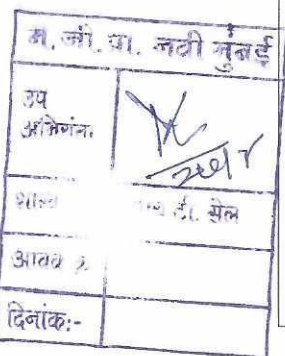 म. जी. प्रा. नवी मुंबई
उप
अभियंता
शाखा टी. सेल
आवक क्र
दिनांक:-